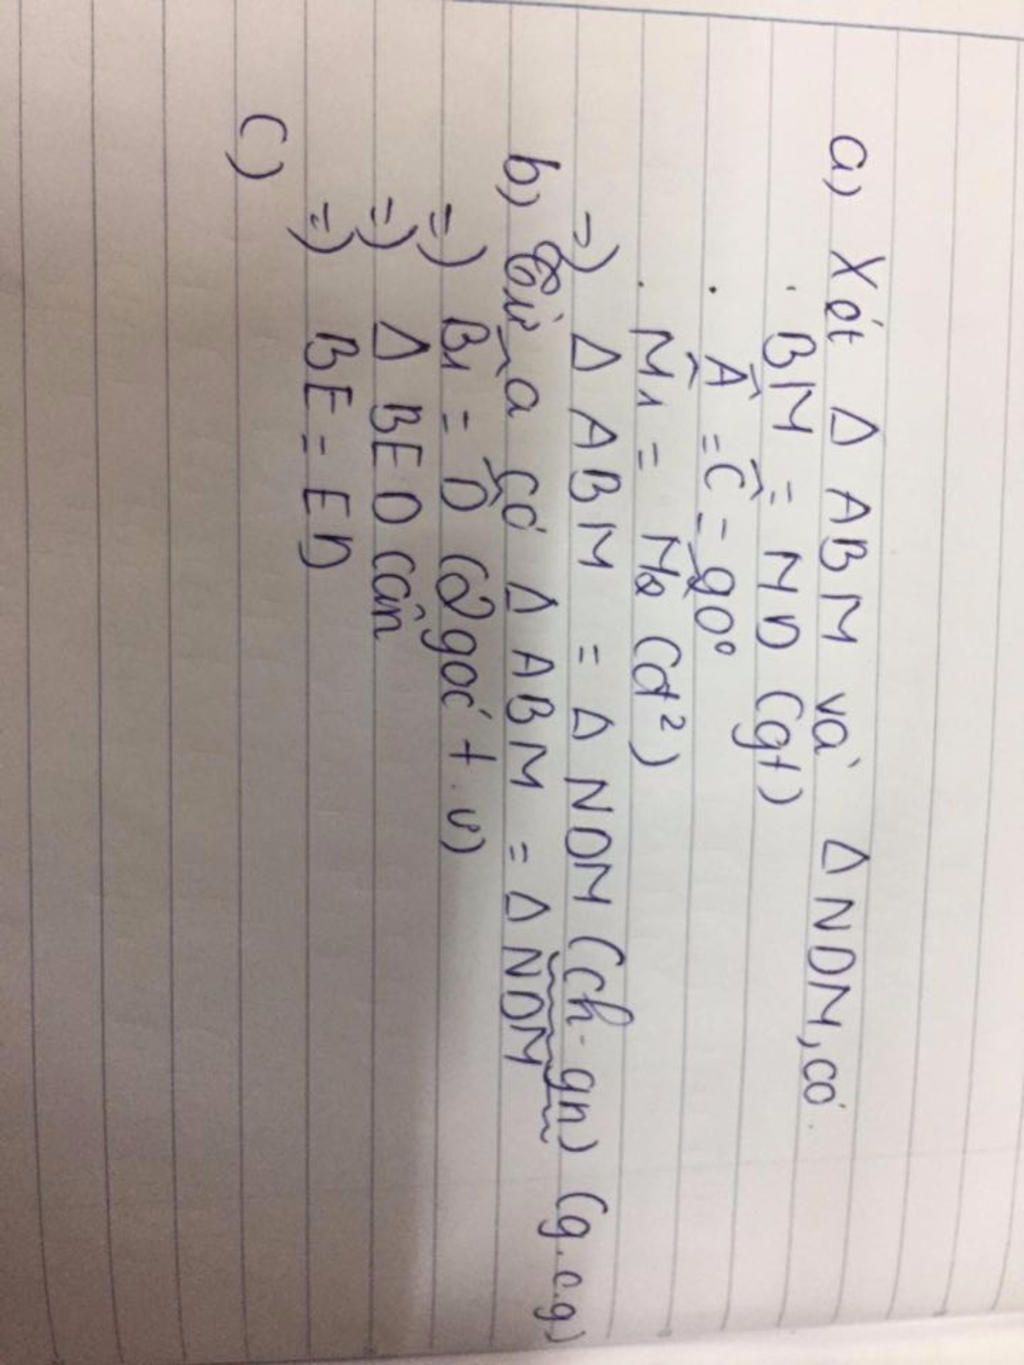 a) Xét Δ ABM và Δ NDM, có
· BM = MD (gt)
· Â = Ĉ = 90°
· M̂1 = M̂2 (đ²)
=) Δ ABM = Δ NDM (ch-gn) (g.c.g)
b) Từ a có Δ ABM = Δ NDM
=) B̂1 = D̂ (2 góc t.ư)
=) Δ BED cân
=) BE = ED
c)